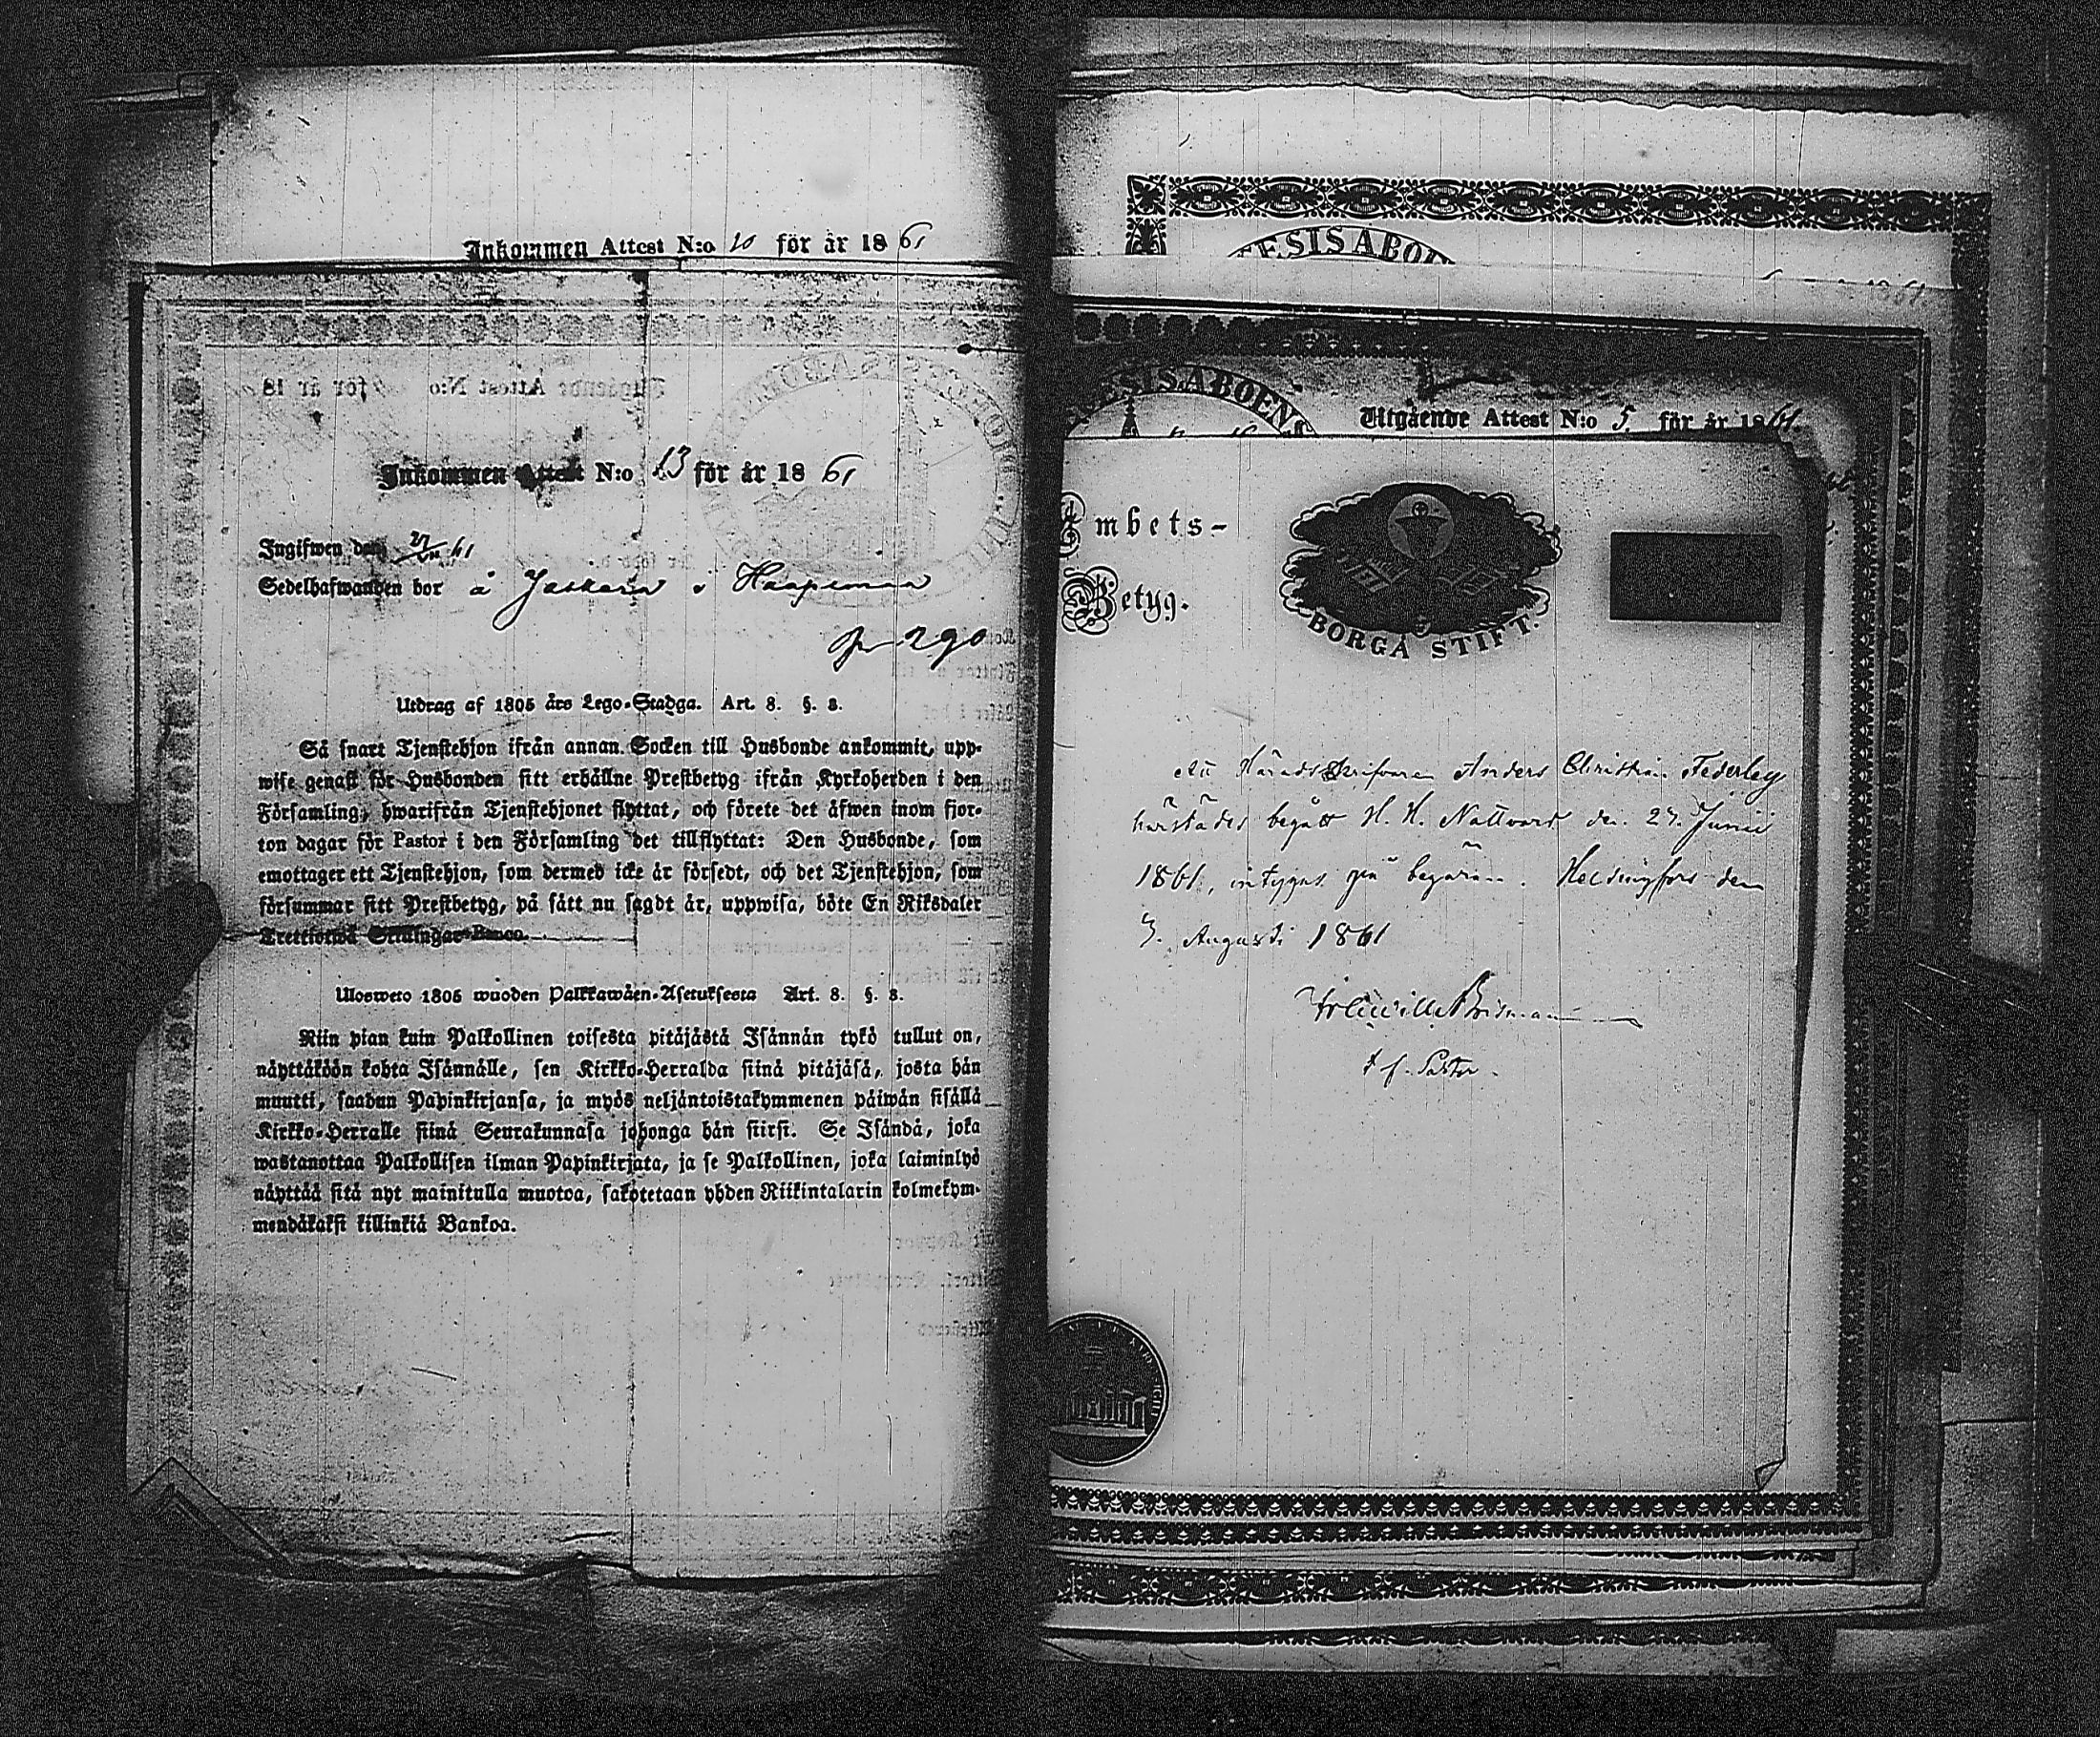 Inkommen Attest N:o 10 för år 1861
Inkommen Attest N:o 13 för år 1861
Ingifwen den 27/ 61
Sedelhafwanden bor å Jaskara
p 290
Utdrag af 1805 års Lego-Stadga. Art. 8. §. 8.
Så snart Tjenstehjon ifrån annan Socken till Husbonde ankommit, upp-
wise genast för Husbonden sitt erhållne Prestbetyg ifrån Kyrkoherden i den
Församling, hwarifrån Tjenstehjonet flyttat, och förete det äfwen inom fjor-
ton dagar för Pastor i den Församling det tillflyttat: Den Husbonde, som
emottager ett Tjenstehjon, som dermed icke är försedt, och det Tjenstehjon, som
försummar sitt Prestbetyg, på sätt nu sagdt är, uppwisa, böte En Riksdaler
Trettiotwå Skillingar Banco.
Ulosweto 1805 wuoden Palkkawäen-Asetuksesta Art. 8. §. 8.
Niin pian kuin Palkollinen toisesta pitäjästä Isännän tykö tullut on,
näyttäköön kohta Isännälle, sen Kirkko-Herralda siinä pitäjäsä, josta hän
muutti, saadun Papinkirjansa, ja myös neljäntoistakymmenen päiwän sisällä
Kirkko-Herralle siinä Seurakunnasa johonga hän siirsi. Se Isändä, joka
wastanottaa Palkollisen ilman Papinkirjata, ja se Palkollinen, joka laiminlyö
näyttää sitä nyt mainitulla muotoa, sakotetaan yhden Riikintalarin kolmekym-
mendäkaksi killinkiä Bankoa.
ESIS ABOE
1861
ESIS ABOEN
Utgående Attest N:o 5. för år 1861.
Embets-
Betyg.
BORGÅ STIFT.
Att Häradsskrifvaren Anders Christian Federley
härstädes begått H. H. Nattvard den 27. Junii
1861, intygas på begäran. Helsingfors den
3. Augusti 1861
Brisman
t. f. Pastor.